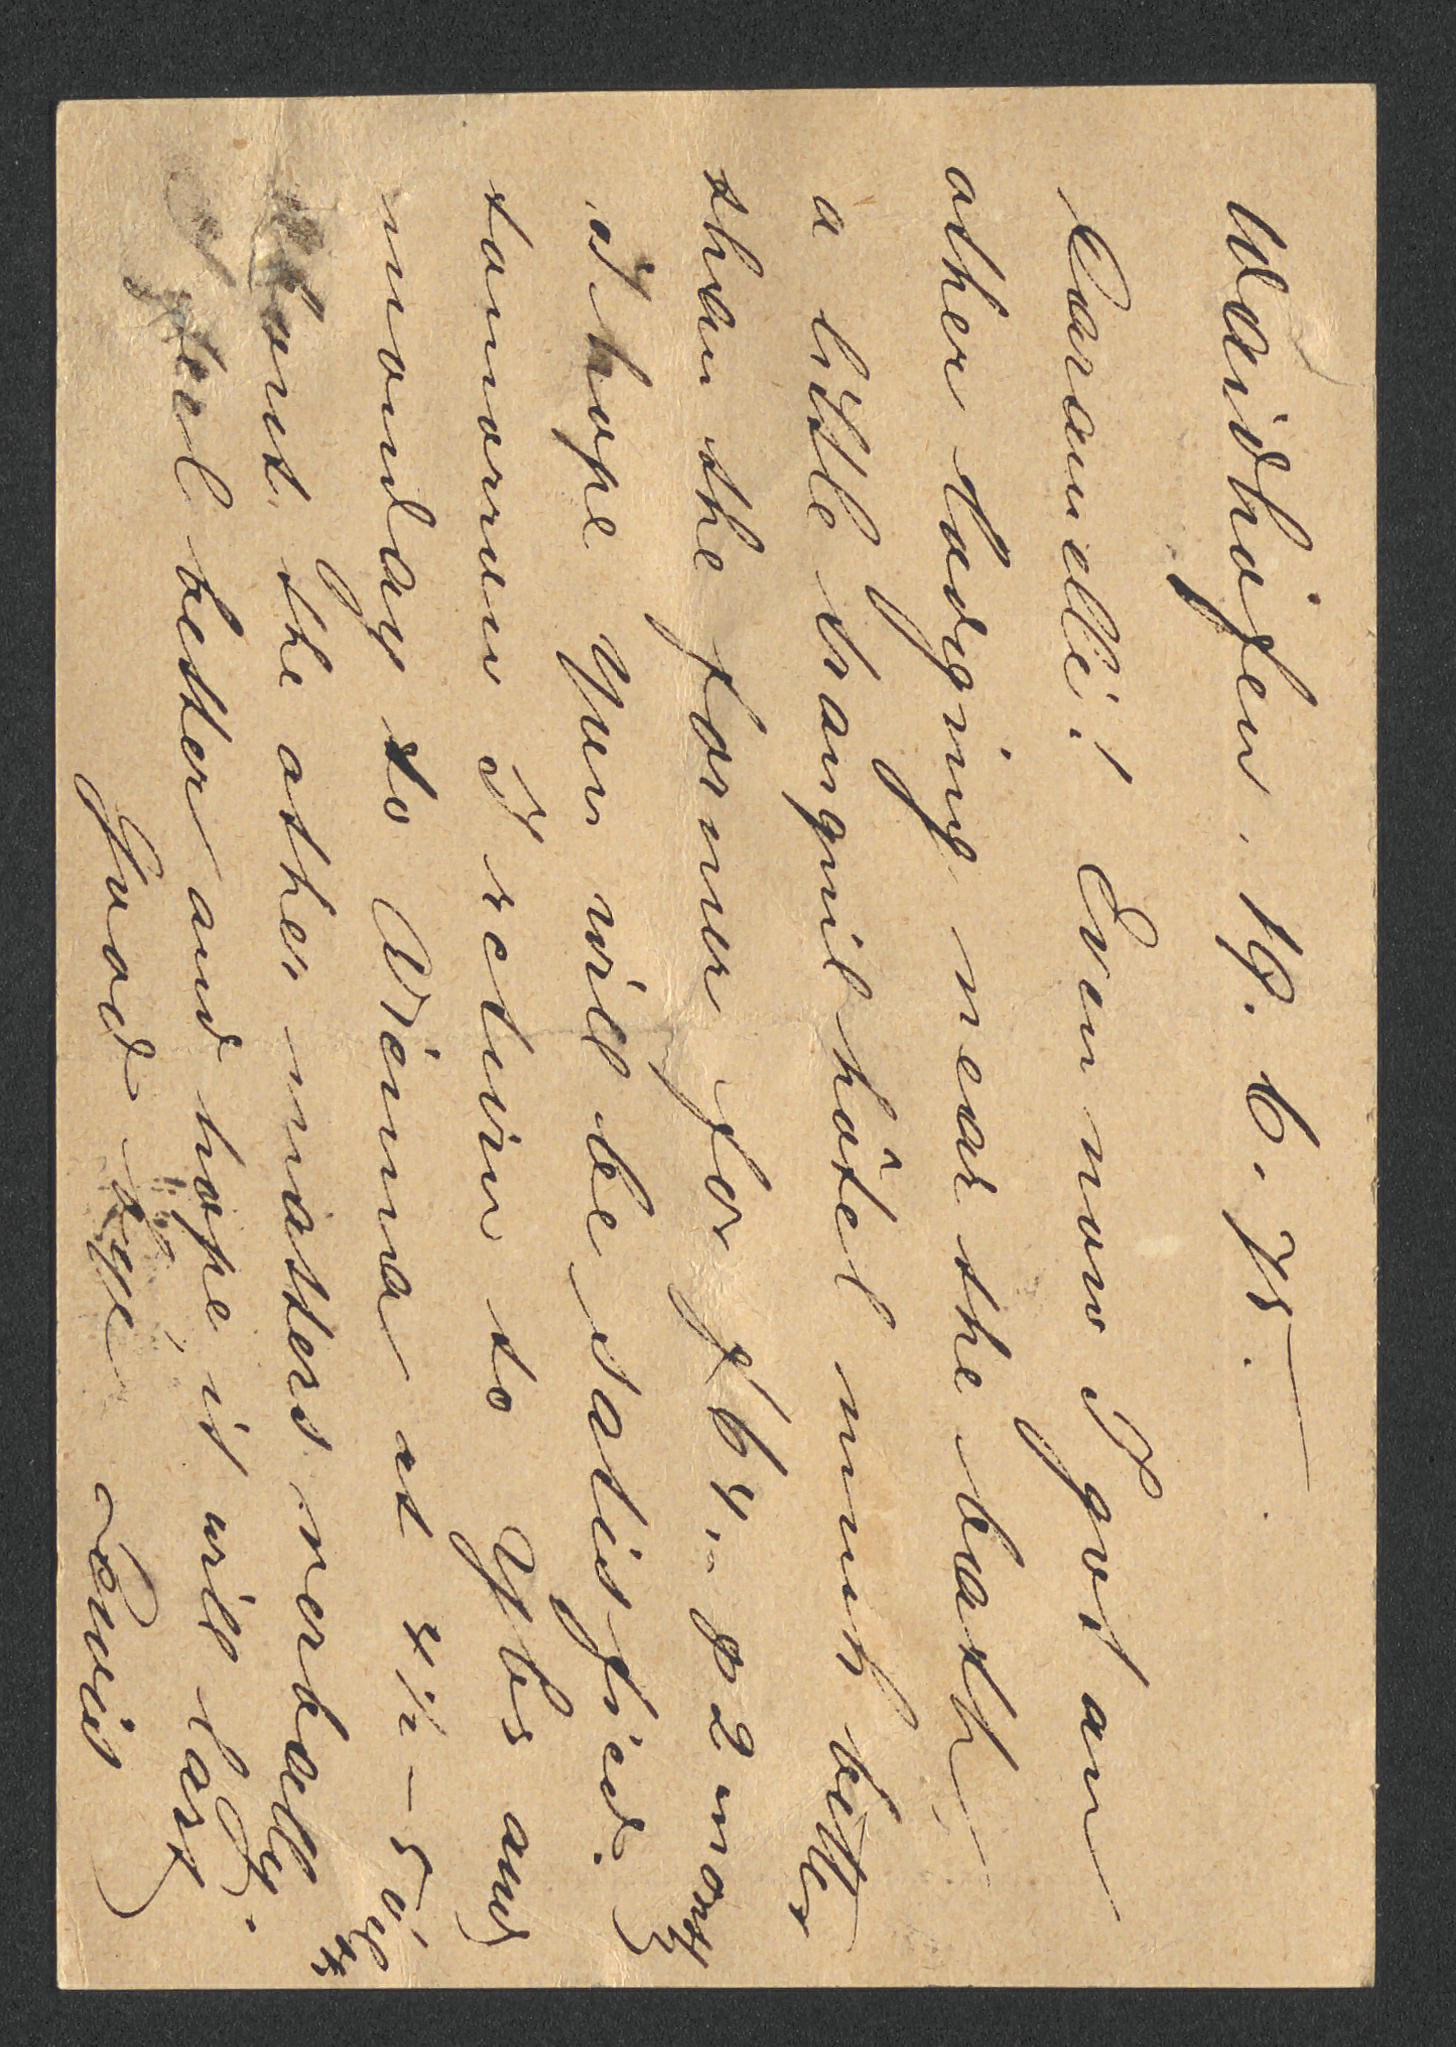 Waidhofen. 19. 6. 75.
Caramelli! Even now I got an
other lodging near the bath,
a little tranquil hôtel much better
than the former for f 64.- p 2 month
I hope you will be satisfied.
tomorrow I return to Ybs and
monday to Vienna at 4½ - 5 o'cl
about the other matters verbally.
I feel better and hope, it will last
Good bye Louis